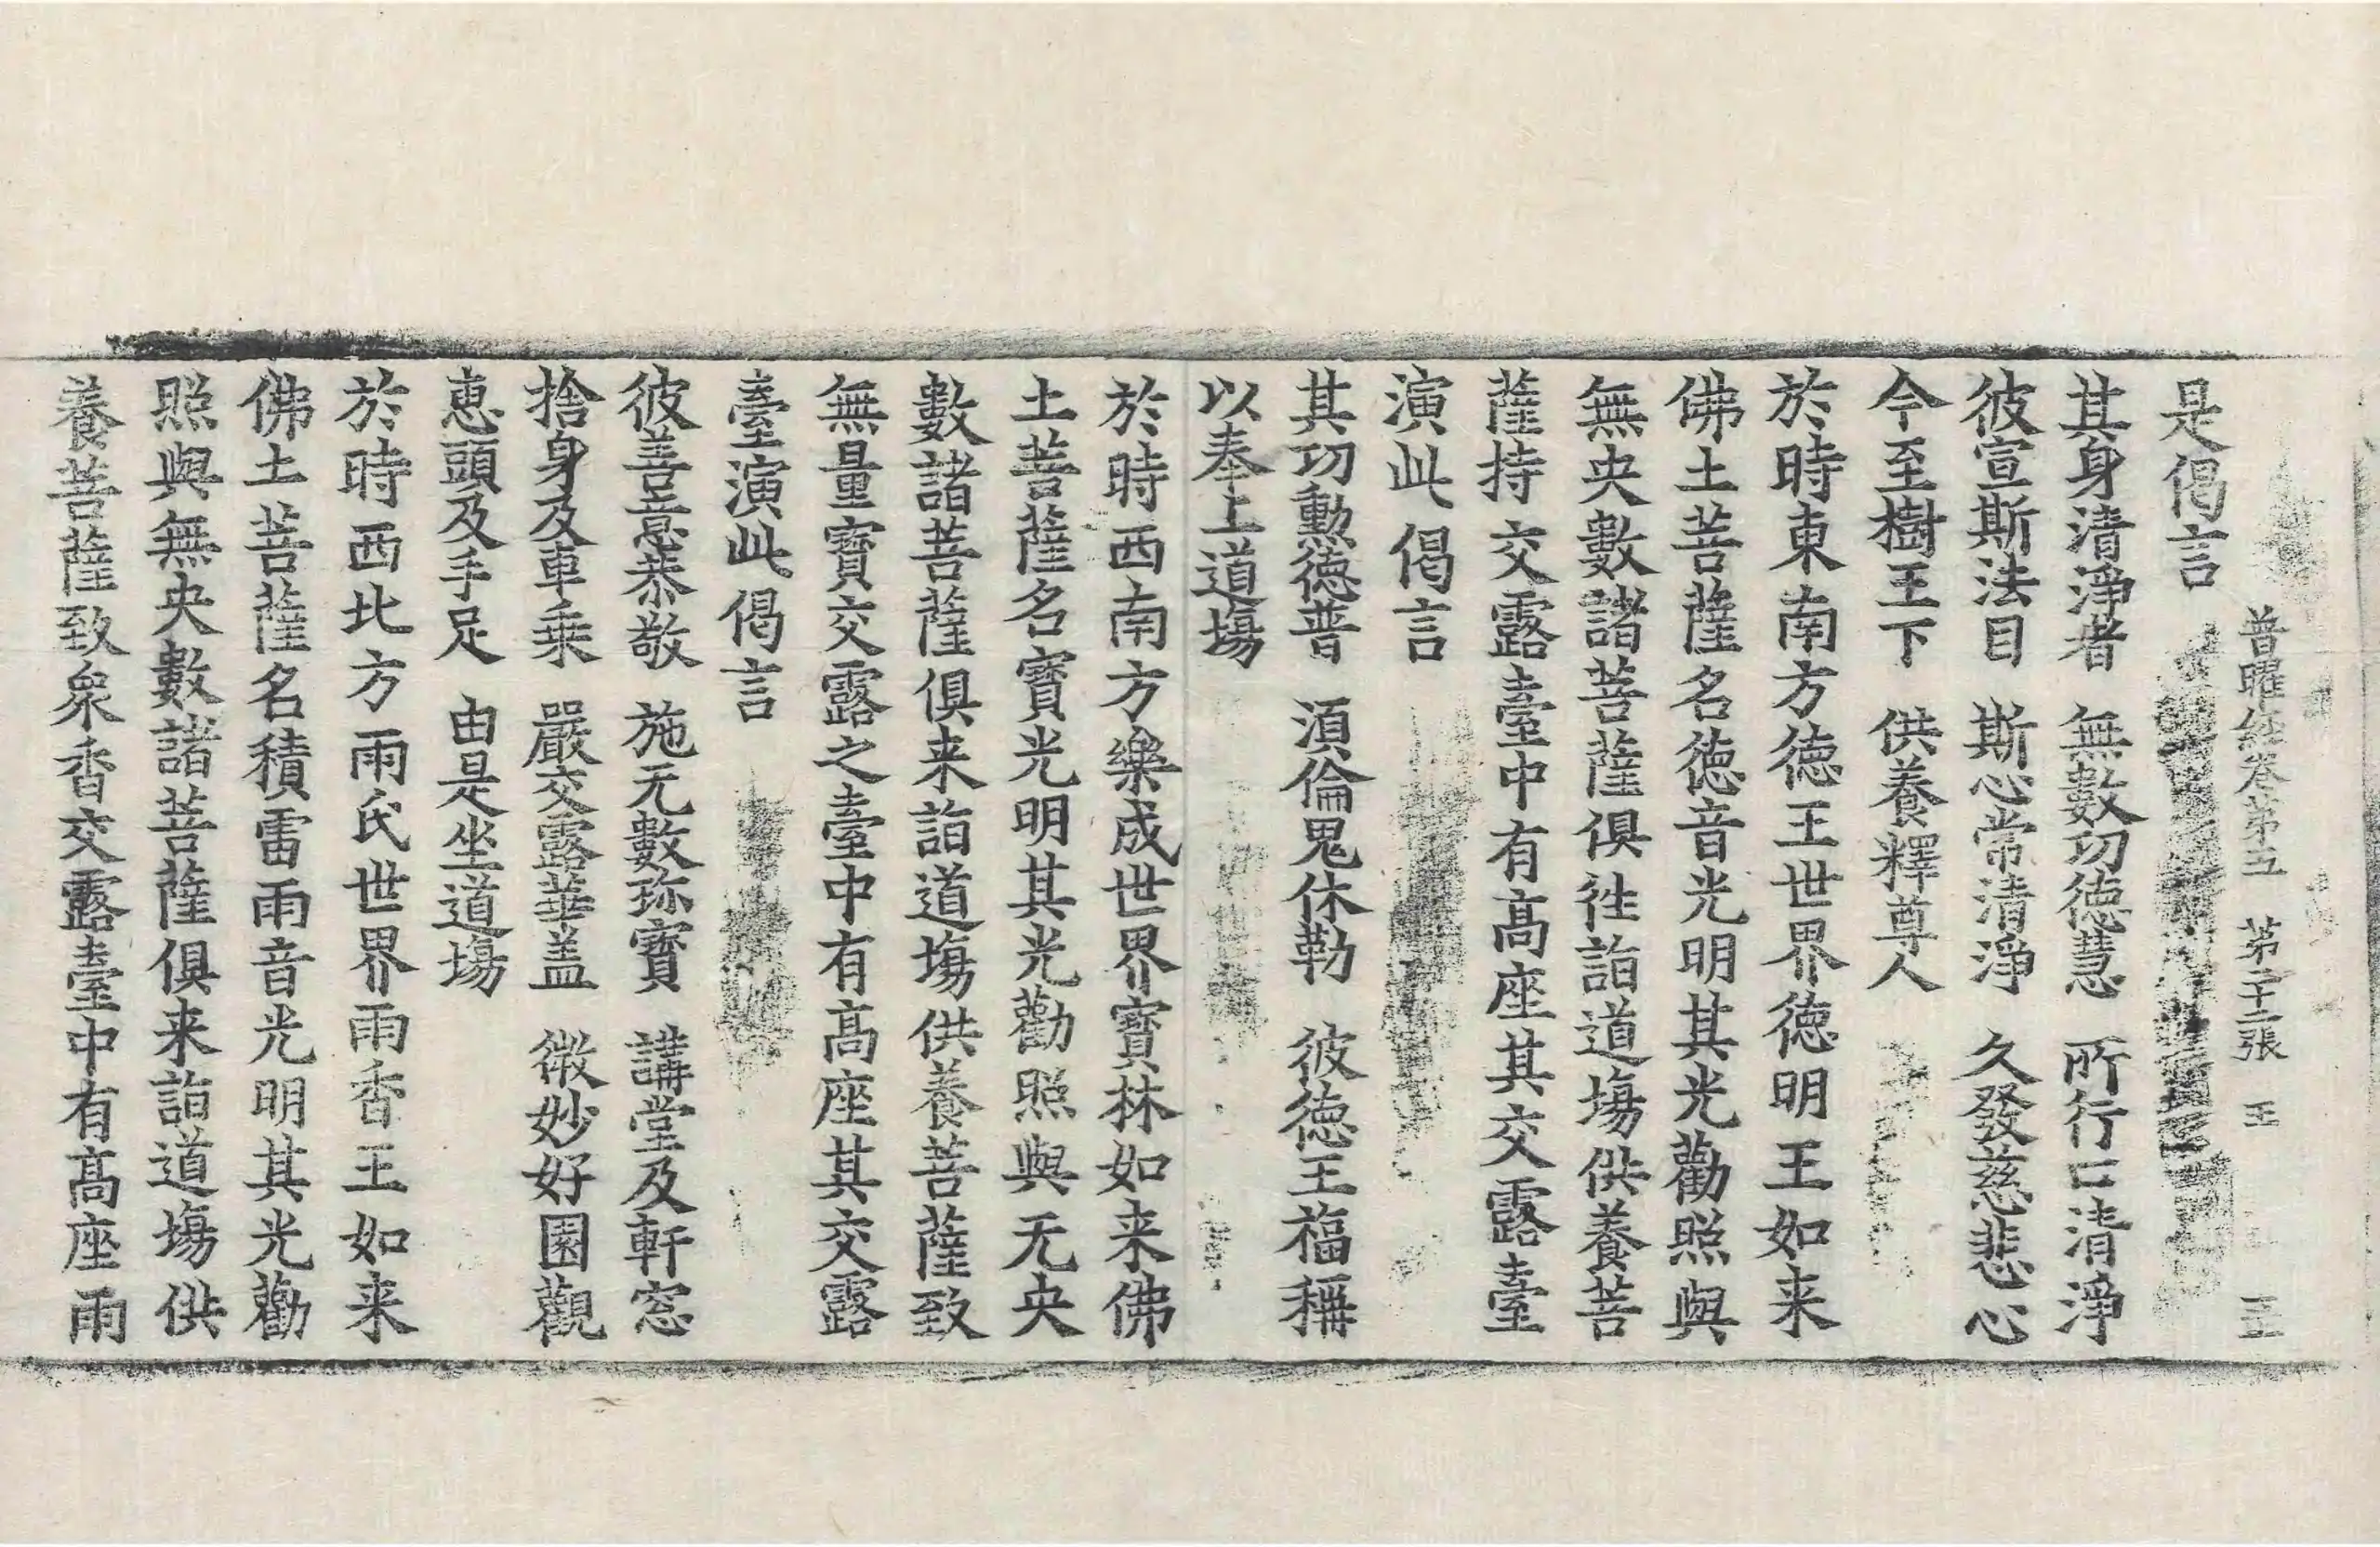 普曜經卷第五　第二十二張　王
是偈言
其身清淨者　無數功德慧　所行口清淨
彼宣斯法目　斯心常清淨　久發慈悲心
今至樹王下　供養釋尊人
於時東南方德王世界德明王如来
佛土菩薩名德音光明其光勸照與
無央數諸菩薩俱徃詣道場供養菩
薩持交露臺中有髙座其交露臺
演此偈言
其功勳德普　須倫鬼休勒　彼德王福稱
以奉上道場
於時西南方樂成世界寳林如来佛
土菩薩名寳光明其光勸照與无央
數諸菩薩俱来詣道場供養菩薩致
無量寳交露之臺中有髙座其交露
臺演此偈言
彼善意恭敬　施无數珎寳　講堂及軒窓
捨身及車乗　嚴交露華盖　微妙好園觀
恵頭及手足　由是坐道場
於時西北方雨氏世界雨香王如来
佛土菩薩名積雷雨音光明其光勸
照與無央數諸菩薩俱来詣道場供
養菩薩致衆香交露臺中有髙座雨